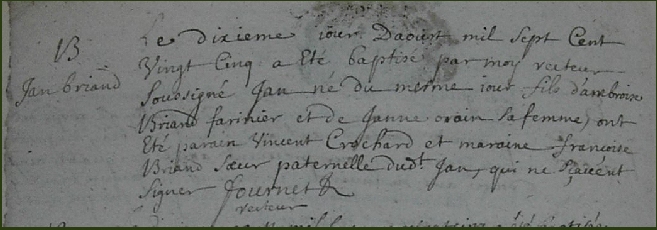 B
Jan briand
Le dixieme iour Daoust mil sept Cent
Vingt Cinq a Eté baptisé par moy recteur
Soussigné Jan né du mesme iour fils dambroise
Briand farinier et de Janne orain sa femme, ont
Eté parain Vincent Crochard et maraine francoise
Briand Sœur paternelle dudt Jan, qui ne scavent
Signer Fournet
recteur